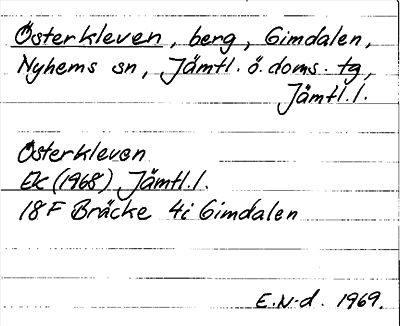 Österkleven, berg, Gimdalen,
Nyhems sn, Jämtl. ö. doms. tg,
Jämtl.l.
Österkleven
Ek (1968) Jämtl.l.
18F Bräcke 4i Gimdalen
E.N-d. 1969.